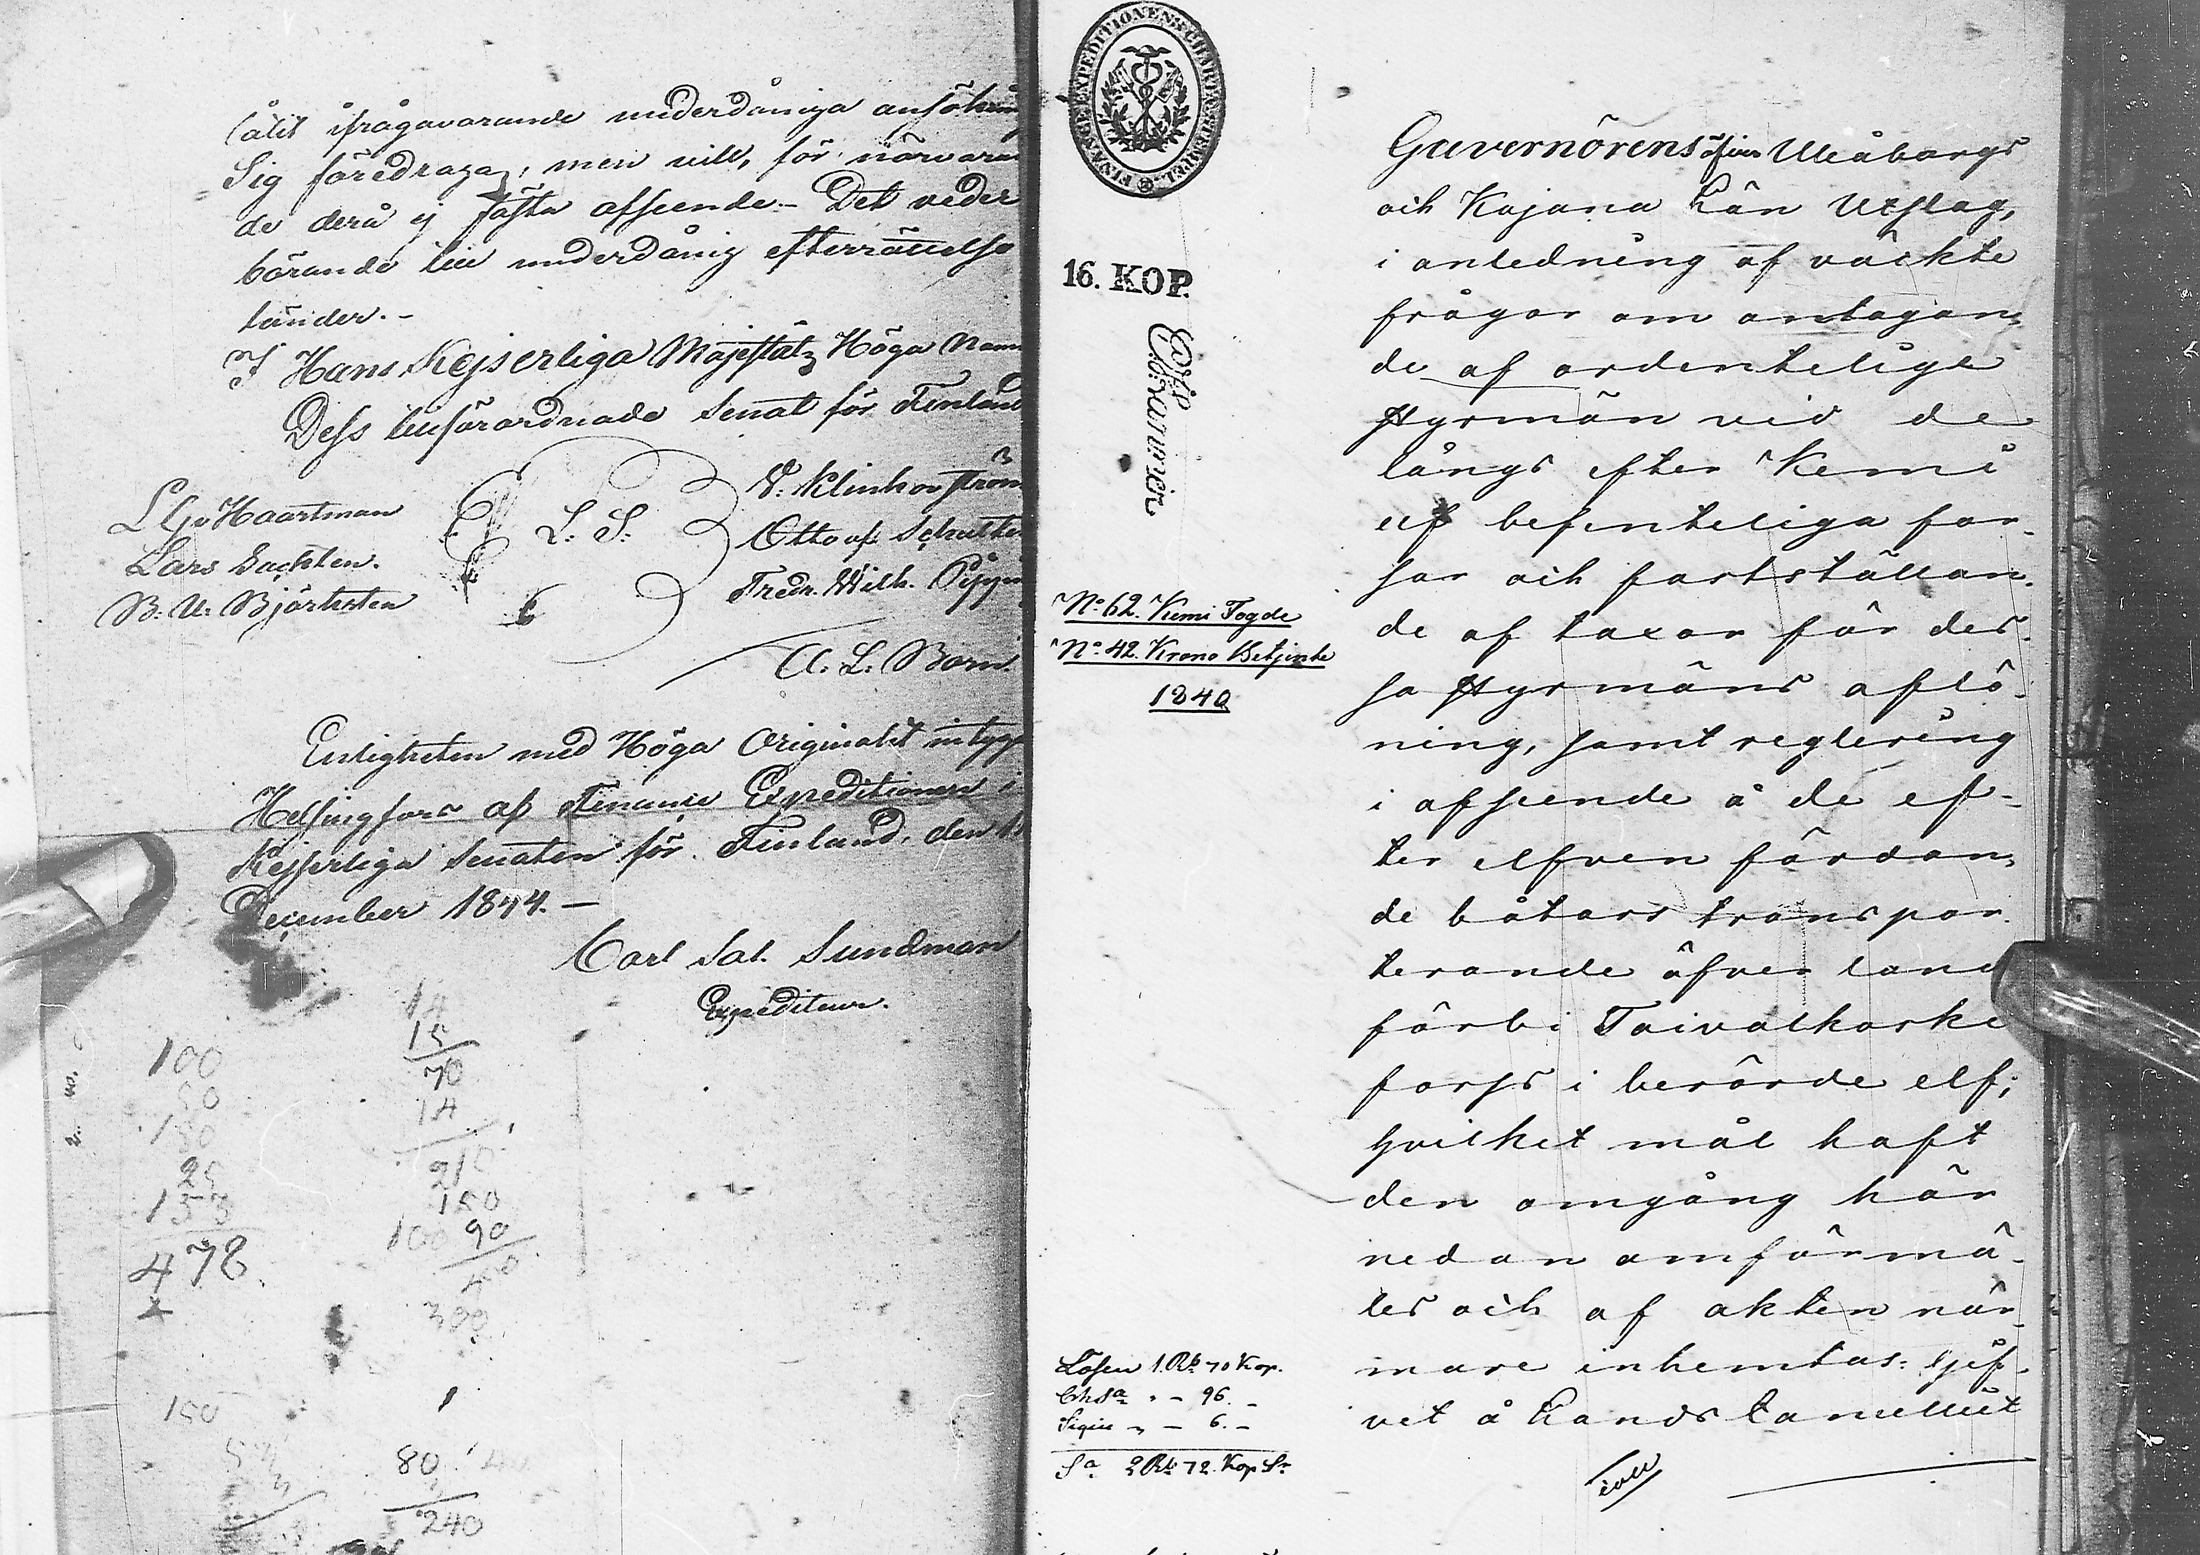 låtit ifrågavarande underdåniga ansökning
Sig föredragas, men vill, för närvaran
de derå ej fästa afseende. – Det veder
börande till underdånig efterrättelse
länder. –
I Hans Kejserliga Majestäts Höga Namn
Dess tillförordnade Senat för Finland
L. G. v Haartman
Lars Sackleen.
B. U. Björksten
L. S.
V. Klinkowström
Otto af Schultén
Fredr. Wilh. Pipping
A. L. Born.
Enligheten med Höga Originalet intygar
Helsingfors af Finance Expeditionen i
Kejserliga Senaten för Finland, den
December 1844. –
Carl Sal. Sundman
Expediteur.
100
50
180
25
153
478
14
15
70
14
210
150
100 90
300
150
80
3
240
FINANCEEXPEDITIONENS CHARTÆSTEMPEL.
16. KOP.
No 62. Kemi Fogde
No 42. Krono Betjente
1840
Lösen 1. Rub 70 Kop.
Ch. Sa " – 96. –
Sigill " – 6. –
Sa 2 Rub 72. Kop Sr
Guvernörens öfver Uleåborgs
och Kajana Län Utslag,
i anledning af väckte
frågor om antagan-
de af ordentelige
styrmän vid de
långs efter Kemi
elf befinteliga for-
sar och fastställan-
de af taxor för des-
sa styrmäns aflö-
ning, samt reglering
i afseende å de ef-
ter elfven färdan-
de båtars transpor-
terande öfver land
förbi Taivalkoski
forss i berörde elf;
hvilket mål haft
den omgång här
nedan omförmä-
les och af akten när-
mare inhemtas: gif-
vet å Lands Cancelliet